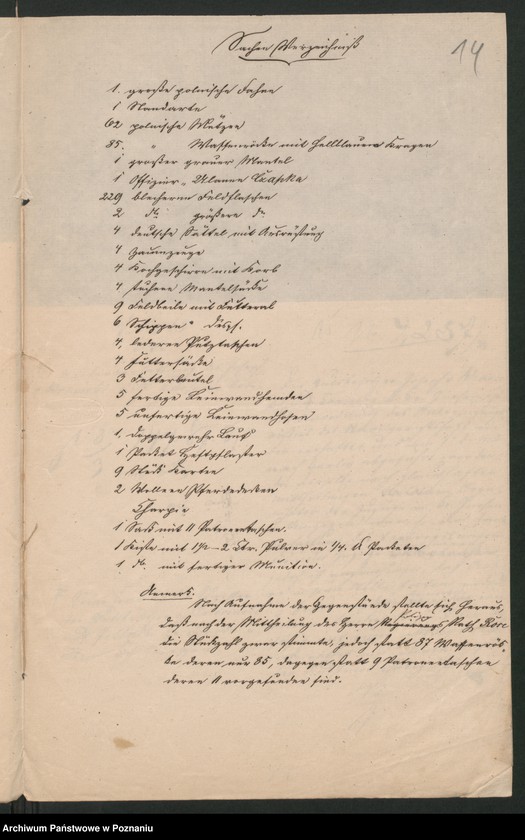 Sachen Verzeichniß
14
1. große polnische Fahne
1 Standarte
62 polnische Mützen
85. " Waffenröcke mit hellblauem Kragen
1 großer grauer Mantel
1 Offizier-Ulanen Czapka
229 blecherne Feldflaschen
2 dto größere do
4 deutsche Sättel mit Ausrüstung
4 Zaumzeuge
4 Kochgeschirre mit Korb
4 tuchene Mantelsäcke
9 Feldbeile mit Futteral
6 Schippen " dergl.
4. lederne Putztaschen
4 Futtersäcke
3 Futterbeutel
5 fertige Leinwandhemden
5 unfertige Leinwandhosen
1. Doppelgewehr Lauf
1 Packet Heftpflaster
9 Stück Karten
2 Wollene Pferdedecken
Charpie
1 Sack mit 11 Patrontaschen.
1 Kiste mit 1½–2 Ctr. Pulver in 1/4. Packeten
1. do. mit fertiger Munition.
Anmerk.
Nach Aufnahme der Gegenstände stellte sich heraus,
daß nach der Mittheilung des Herrn Regierungs Rath Rose
die Stückzahl zwar stimmte, jedoch statt 87 Waffenröc-
ke deren nur 85, dagegen statt 9 Patrontaschen
deren 11 vorgefunden sind.
Archiwum Państwowe w Poznaniu